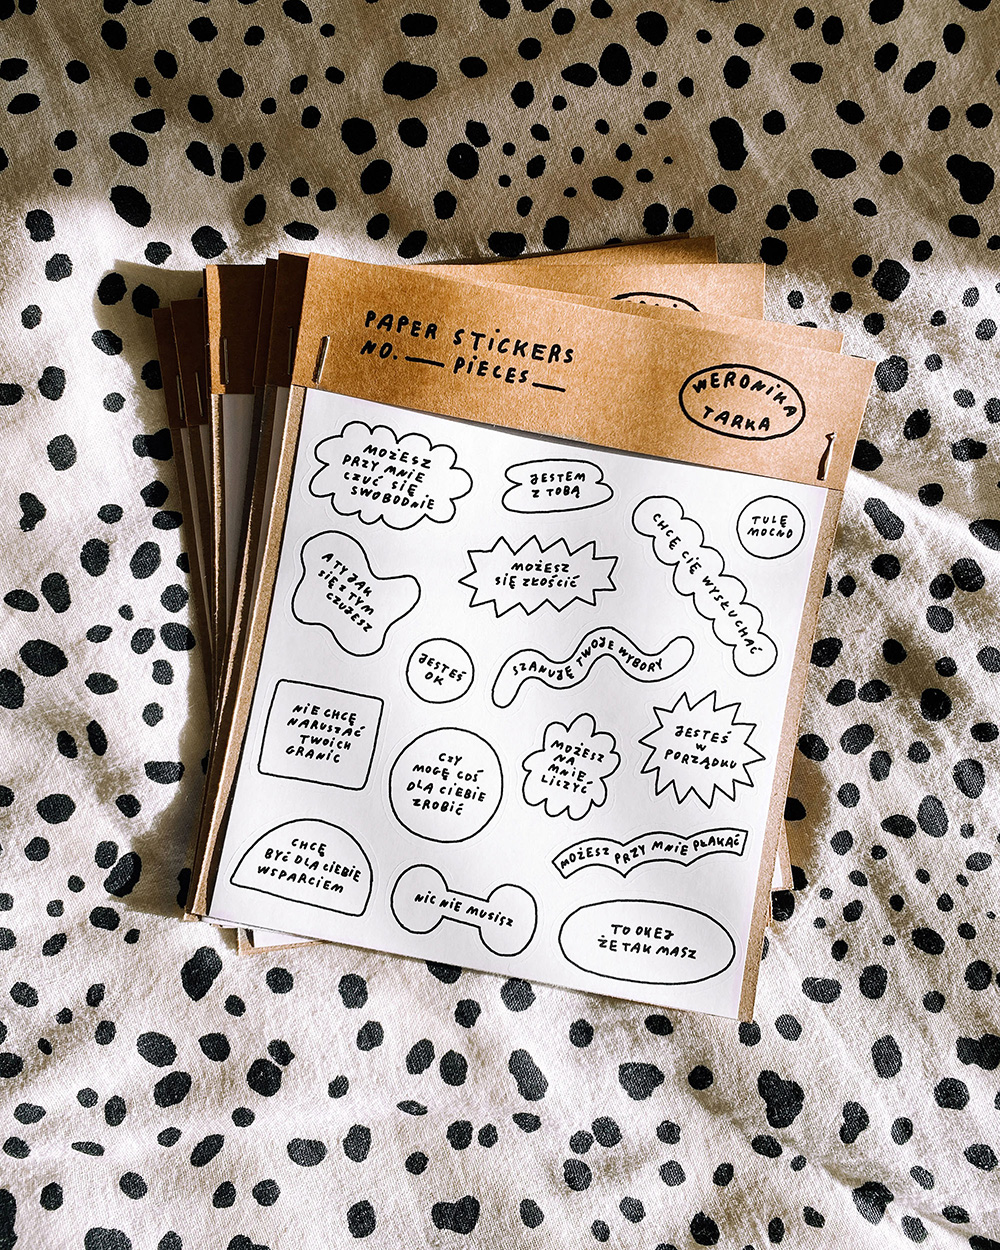 PAPER STICKERS
NO. PIECES
WERONIKA
TARKA
MOŻESZ
PRZY MNIE
CZUĆ SIĘ
SWOBODNIE
JESTEM
Z TOBĄ
CHCĘ CIĘ WYSŁUCHAĆ
TULĘ
MOCNO
A TY JAK
SIĘ Z TYM
CZUJESZ
MOŻESZ
SIĘ ZŁOŚCIĆ
JESTEŚ
OK
SZANUJĘ TWOJE WYBORY
NIE CHCĘ
NARUSZAĆ
TWOICH
GRANIC
CZY
MOGĘ COŚ
DLA CIEBIE
ZROBIĆ
MOŻESZ
NA
MNIE
LICZYĆ
JESTEŚ
W
PORZĄDKU
CHCĘ
BYĆ DLA CIEBIE
WSPARCIEM
NIC NIE MUSISZ
MOŻESZ PRZY MNIE PŁAKAĆ
TO OKEJ
ŻE TAK MASZ